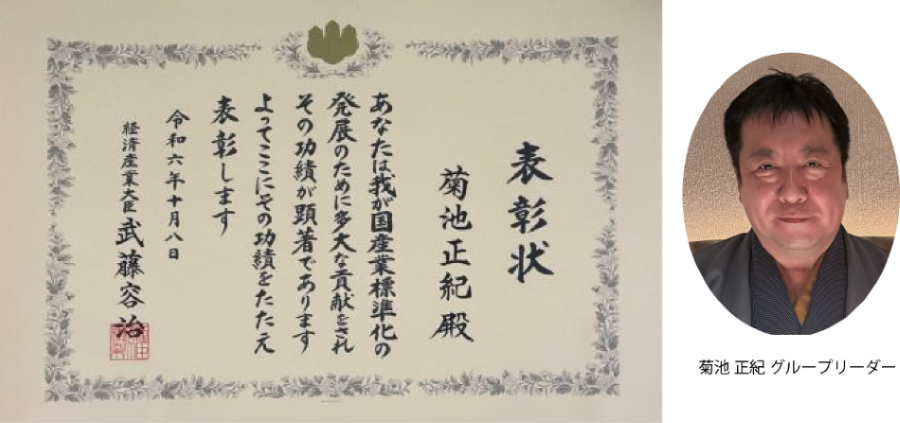 表彰状
菊池正紀殿
あなたは我が国産業標準化の
発展のために多大な貢献をされ
その功績が顕著であります
よってここにその功績をたたえ
表彰します
令和六年十月八日
経済産業大臣 武藤容治
菊池 正紀 グループリーダー